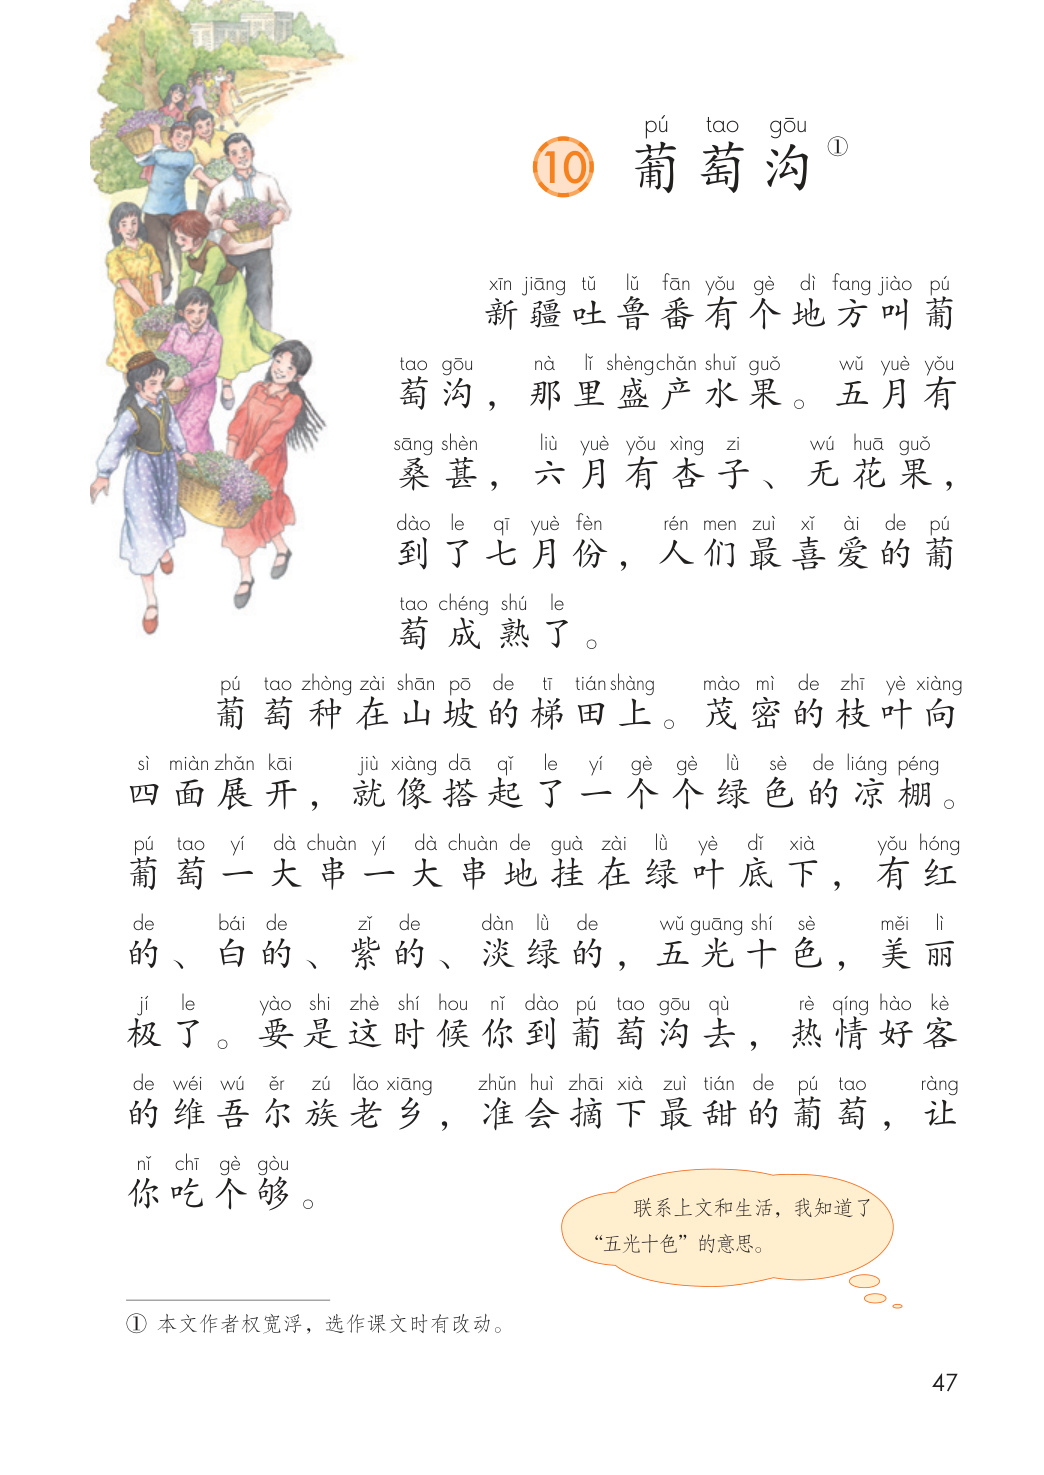 pú tao gōu
10 葡萄沟①
xīn jiāng tǔ lǔ fān yǒu gè dì fang jiào pú
新疆吐鲁番有个地方叫葡
tao gōu nà lǐ shèng chǎn shuǐ guǒ wǔ yuè yǒu
萄沟，那里盛产水果。五月有
sāng shèn liù yuè yǒu xìng zi wú huā guǒ
桑葚，六月有杏子、无花果，
dào le qī yuè fèn rén men zuì xǐ ài de pú
到了七月份，人们最喜爱的葡
tao chéng shú le
萄成熟了。
pú tao zhòng zài shān pō de tī tián shàng mào mì de zhī yè xiàng
葡萄种在山坡的梯田上。茂密的枝叶向
sì miàn zhǎn kāi jiù xiàng dā qǐ le yí gè gè lǜ sè de liáng péng
四面展开，就像搭起了一个个绿色的凉棚。
pú tao yí dà chuàn yí dà chuàn de guà zài lǜ yè dǐ xià yǒu hóng
葡萄一大串一大串地挂在绿叶底下，有红
de bái de zǐ de dàn lǜ de wǔ guāng shí sè měi lì
的、白的、紫的、淡绿的，五光十色，美丽
jí le yào shi zhè shí hou nǐ dào pú tao gōu qù rè qíng hào kè
极了。要是这时候你到葡萄沟去，热情好客
de wéi wú ěr zú lǎo xiāng zhǔn huì zhāi xià zuì tián de pú tao ràng
的维吾尔族老乡，准会摘下最甜的葡萄，让
nǐ chī gè gòu
你吃个够。
联系上文和生活，我知道了
“五光十色”的意思。
① 本文作者权宽浮，选作课文时有改动。
47